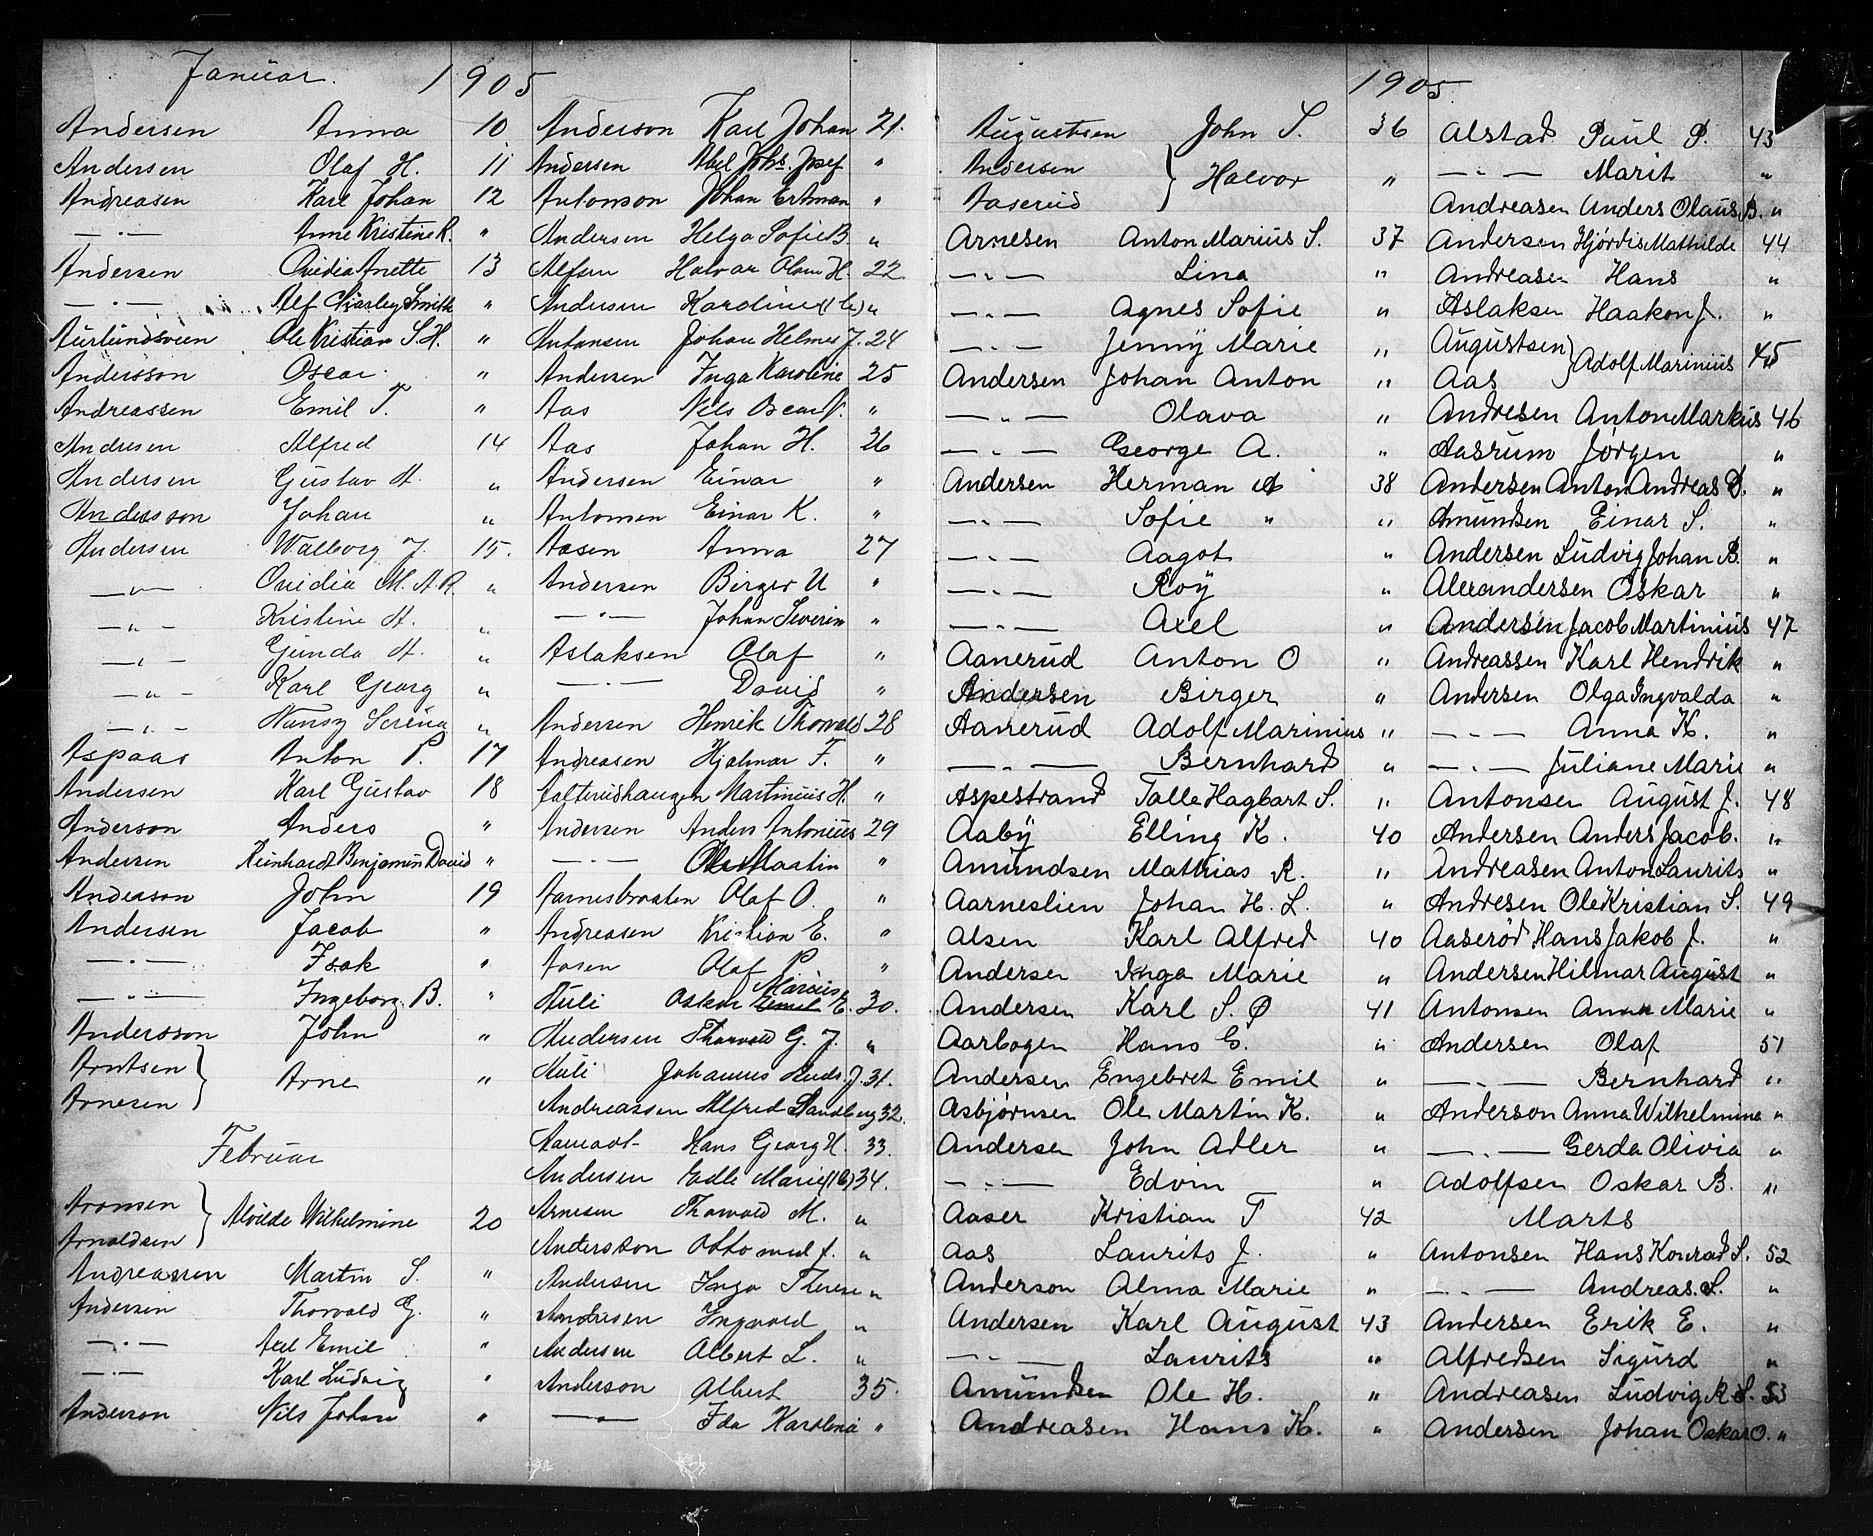 Januar. 1905
Andersen Anna 10
Andersen Olaf H. 11
Andreasen Karl Johan 12
— " — Anne Kristine R. "
Andersen Ovidia Anette 13
— " — Alf Charley Smith "
Aurlundsveen Ole Kristian S. H. "
Andersson Oscar "
Andreassen Emil T. "
Andersen Alfred 14
Andersen Gustav A. "
Andersson Johan "
Andersen Walborg J. 15.
— " — Ovidia M. A. R. "
— " — Kristine A. "
— " — Gunda A. "
— " — Karl Georg "
— " — Nansy Serina "
Aspaas Anton P. 17
Andersen Karl Gustav 18
Anderson Anders "
Andersen Reinhardt Benjamin David "
Anderson John 19
Andersen Jacob "
— " — Isak "
— " — Ingeborg B. "
Andersson John "
Arntsen
Arne "
Arnesen
Februar
Aronsen
Alvilde Wilhelmine 20
Arnoldsen
Andreassen Martin S. "
Andersen Thorvald G. "
— " — Axel Emil "
— " — Karl Ludvig "
Anderson Nils Johan "
Anderson Karl Johan 21.
Andersen Abel Johs. Josef "
Antonson Johan Ertman "
Andersen Helga Sofie B "
Alfsen Halvar Olaus H. 22
Andersen Karoline "
Antonsen Johan Helmer J. 24
Andersen Inga Karoline 25
Aas Nils Oscar "
Aas Johan H. 26
Andersen Einar "
Antonsen Einar K. "
Aasen Anna 27
Andersen Birger U "
— " — Johan Severin "
Aslaksen Olaf "
— " — David "
Andersen Henrik Thorvald 28
Andreasen Hjalmar F. "
Martinius H. "
Andersen Anders Antonius 29
— " — Ole Martin "
Aarnesbraaten Olaf O. "
Andreasen Kristian E. "
Aasen Olaf P. "
Marius
Auli Oskar Emil E. 30.
Andersen Thorvald G. J. "
Auli Johannes Ruds. J. 31.
Andreassen Alfred Sandberg 32.
Aamodt Hans Georg H. 33.
Andersen Edle Marie 34.
Arnesen Thorvald M. "
Andersson Otto "
Andersen Inga Therese "
Andersen Ingvald "
Andersen Albert L. "
Anderson Albert 35.
— " — Ida Karolina "
1905
Augustsen John S. 36
Andersen
Halvor "
Aaserud
Arnesen Anton Marius S. 37
— " — Lina "
— " — Agnes Sofie "
— " — Jenny Marie "
Andersen Johan Anton "
— " — Olava "
— " — George A. "
Andersen Herman A 38
— " — Sofie " "
— " — Aagot "
— " — Roy "
— " — Axel "
Aanerud Anton O "
Andersen Birger "
Aanerud Adolf Marinius "
— " — Bernhard "
Aspestrand Talle Hagbart S. "
Aaby Elling K. 40
Amundsen Mathias R. "
Aarneslien Johan H. L. "
Alsen Karl Alfred 40
Andersen Inga Marie "
Andersen Karl S. Ø 41
Aarbogen Hans G. "
Andersen Engebret Emil "
Asbjørnsen Ole Martin K. "
Andersen John Adler "
— " — Edvin "
Aaser Kristian T 42
Aas Laurits J. "
Anderson Alma Marie "
Andersen Karl August 43
— " — Laurits "
Amundsen Ole H. "
Andreasen Hans K. "
Alstad Paul P. 43
— " — Marit "
Andreasen Anders Olaus B. "
Andersen Hjørdis Mathilde 44
Andreasen Hans "
Aslaksen Haakon J. "
Augustsen
Adolf Marinius 45
Aas
Andresen Anton Markus 46
Aasrum Jørgen "
Andersen Anton Andreas D. "
Amundsen Einar S. "
Andersen Ludvig Johan B. "
Alexandersen Oskar "
Andersen Jacob Martinius 47
Andreassen Karl Hendrik "
Andersen Olga Ingvalda "
— " — Anna K. "
— " — Juliane Marie "
Antonsen August J. 48
Andersen Anders Jacob. "
Andreasen Anton Laurits "
Andresen Ole Kristian S. 49
Aaserød Hans Jakob J. "
Andersen Hilmar August "
Antonsen Anna Marie "
Andersen Olaf 51
— " — Bernhard "
Anderson Anna Wilhelmina "
— " — Gerda Olivia "
Adolfsen Oskar B. "
Marts
Antonsen Hans Konrad S. 52
— " — Andreas. S. "
Andersen Erik E. "
Alfredsen Sigurd "
Andreasen Ludvig R. S. 53
Andersen Johan Oskar O. "